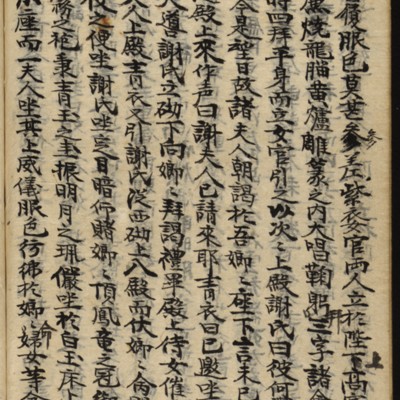 服色莫甚參差紫衣官兩人立於陛下高
燒龍腦黃爐雕篆之內大唱鞠躬三字諸
時四拜平身而立女官引之以次々上殿謝氏曰彼何
今是聖日故諸夫人朝謁於吾娘々下言未已
殿上來作声曰謝夫人已請來耶青衣曰已邀坐
人導謝氏立砌下向娘々拜謁禮畢殿上侍女催
人上殿青衣又引謝氏從西砌上入殿而伏娘々
之便坐謝氏坐定目暗仰賭娘々頂鳳竜之冠
之袍秉青玉之圭振明月之珮儼坐於白玉床上
座而一夫人坐其上威儀服色彷彿於娘々娣女等